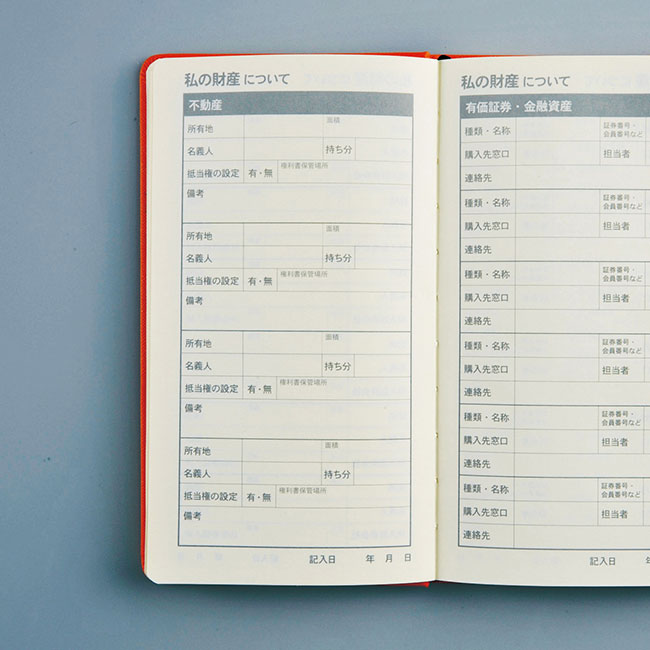 私の財産について
不動産
所有地 面積
名義人 持ち分
抵当権の設定 有・無 権利書保管場所
備考
所有地 面積
名義人 持ち分
抵当権の設定 有・無 権利書保管場所
備考
所有地 面積
名義人 持ち分
抵当権の設定 有・無 権利書保管場所
備考
所有地 面積
名義人 持ち分
抵当権の設定 有・無 権利書保管場所
備考
記入日 年 月 日
私の財産について
有価証券・金融資産
種類・名称 証券番号・
会員番号など
購入先窓口 担当者
連絡先
種類・名称 証券番号・
会員番号など
購入先窓口 担当者
連絡先
種類・名称 証券番号・
会員番号など
購入先窓口 担当者
連絡先
種類・名称 証券番号・
会員番号など
購入先窓口 担当者
連絡先
種類・名称 証券番号・
会員番号など
購入先窓口 担当者
連絡先
種類・名称 証券番号・
会員番号など
購入先窓口 担当者
連絡先
記入日